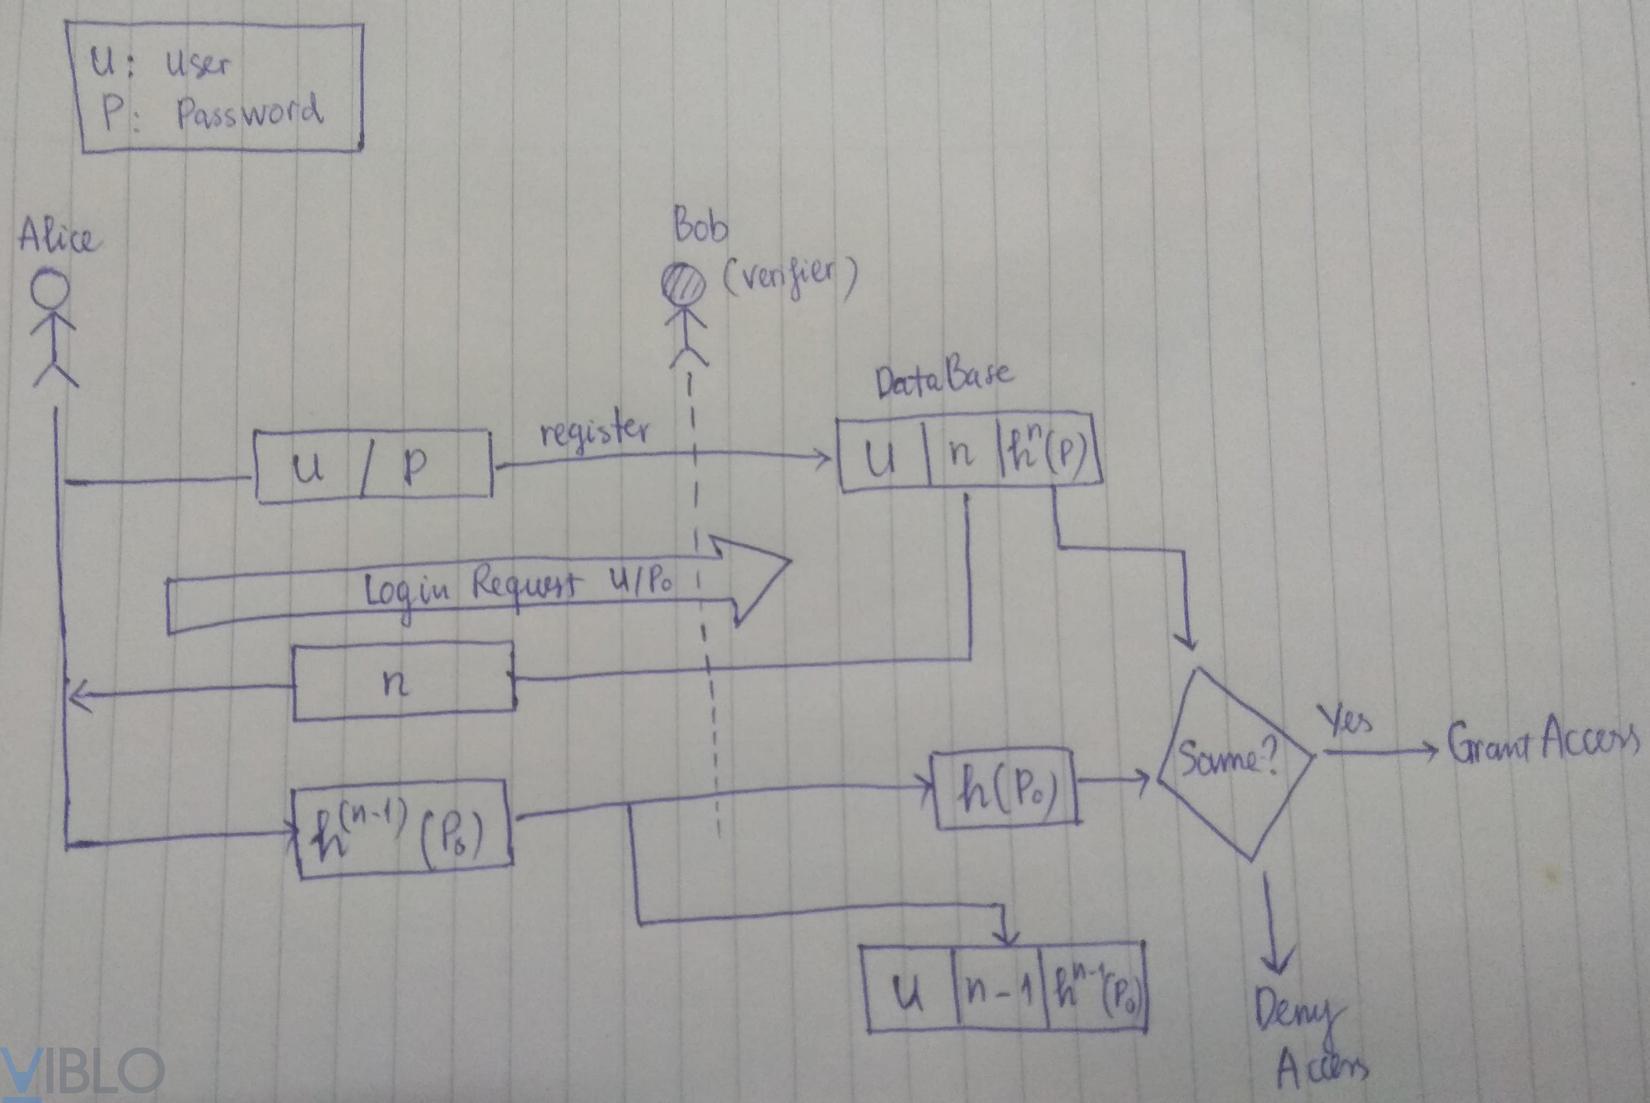 U: User
P: Password
Alice
Bob
(verifier)
DataBase
U / P
register
U | n | hⁿ(P)
Login Request U/P₀
n
Same?
Yes
Grant Access
h⁽ⁿ⁻¹⁾(P₀)
h(P₀)
U | n-1 | hⁿ⁻¹(P₀)
Deny
Access
VIBLO